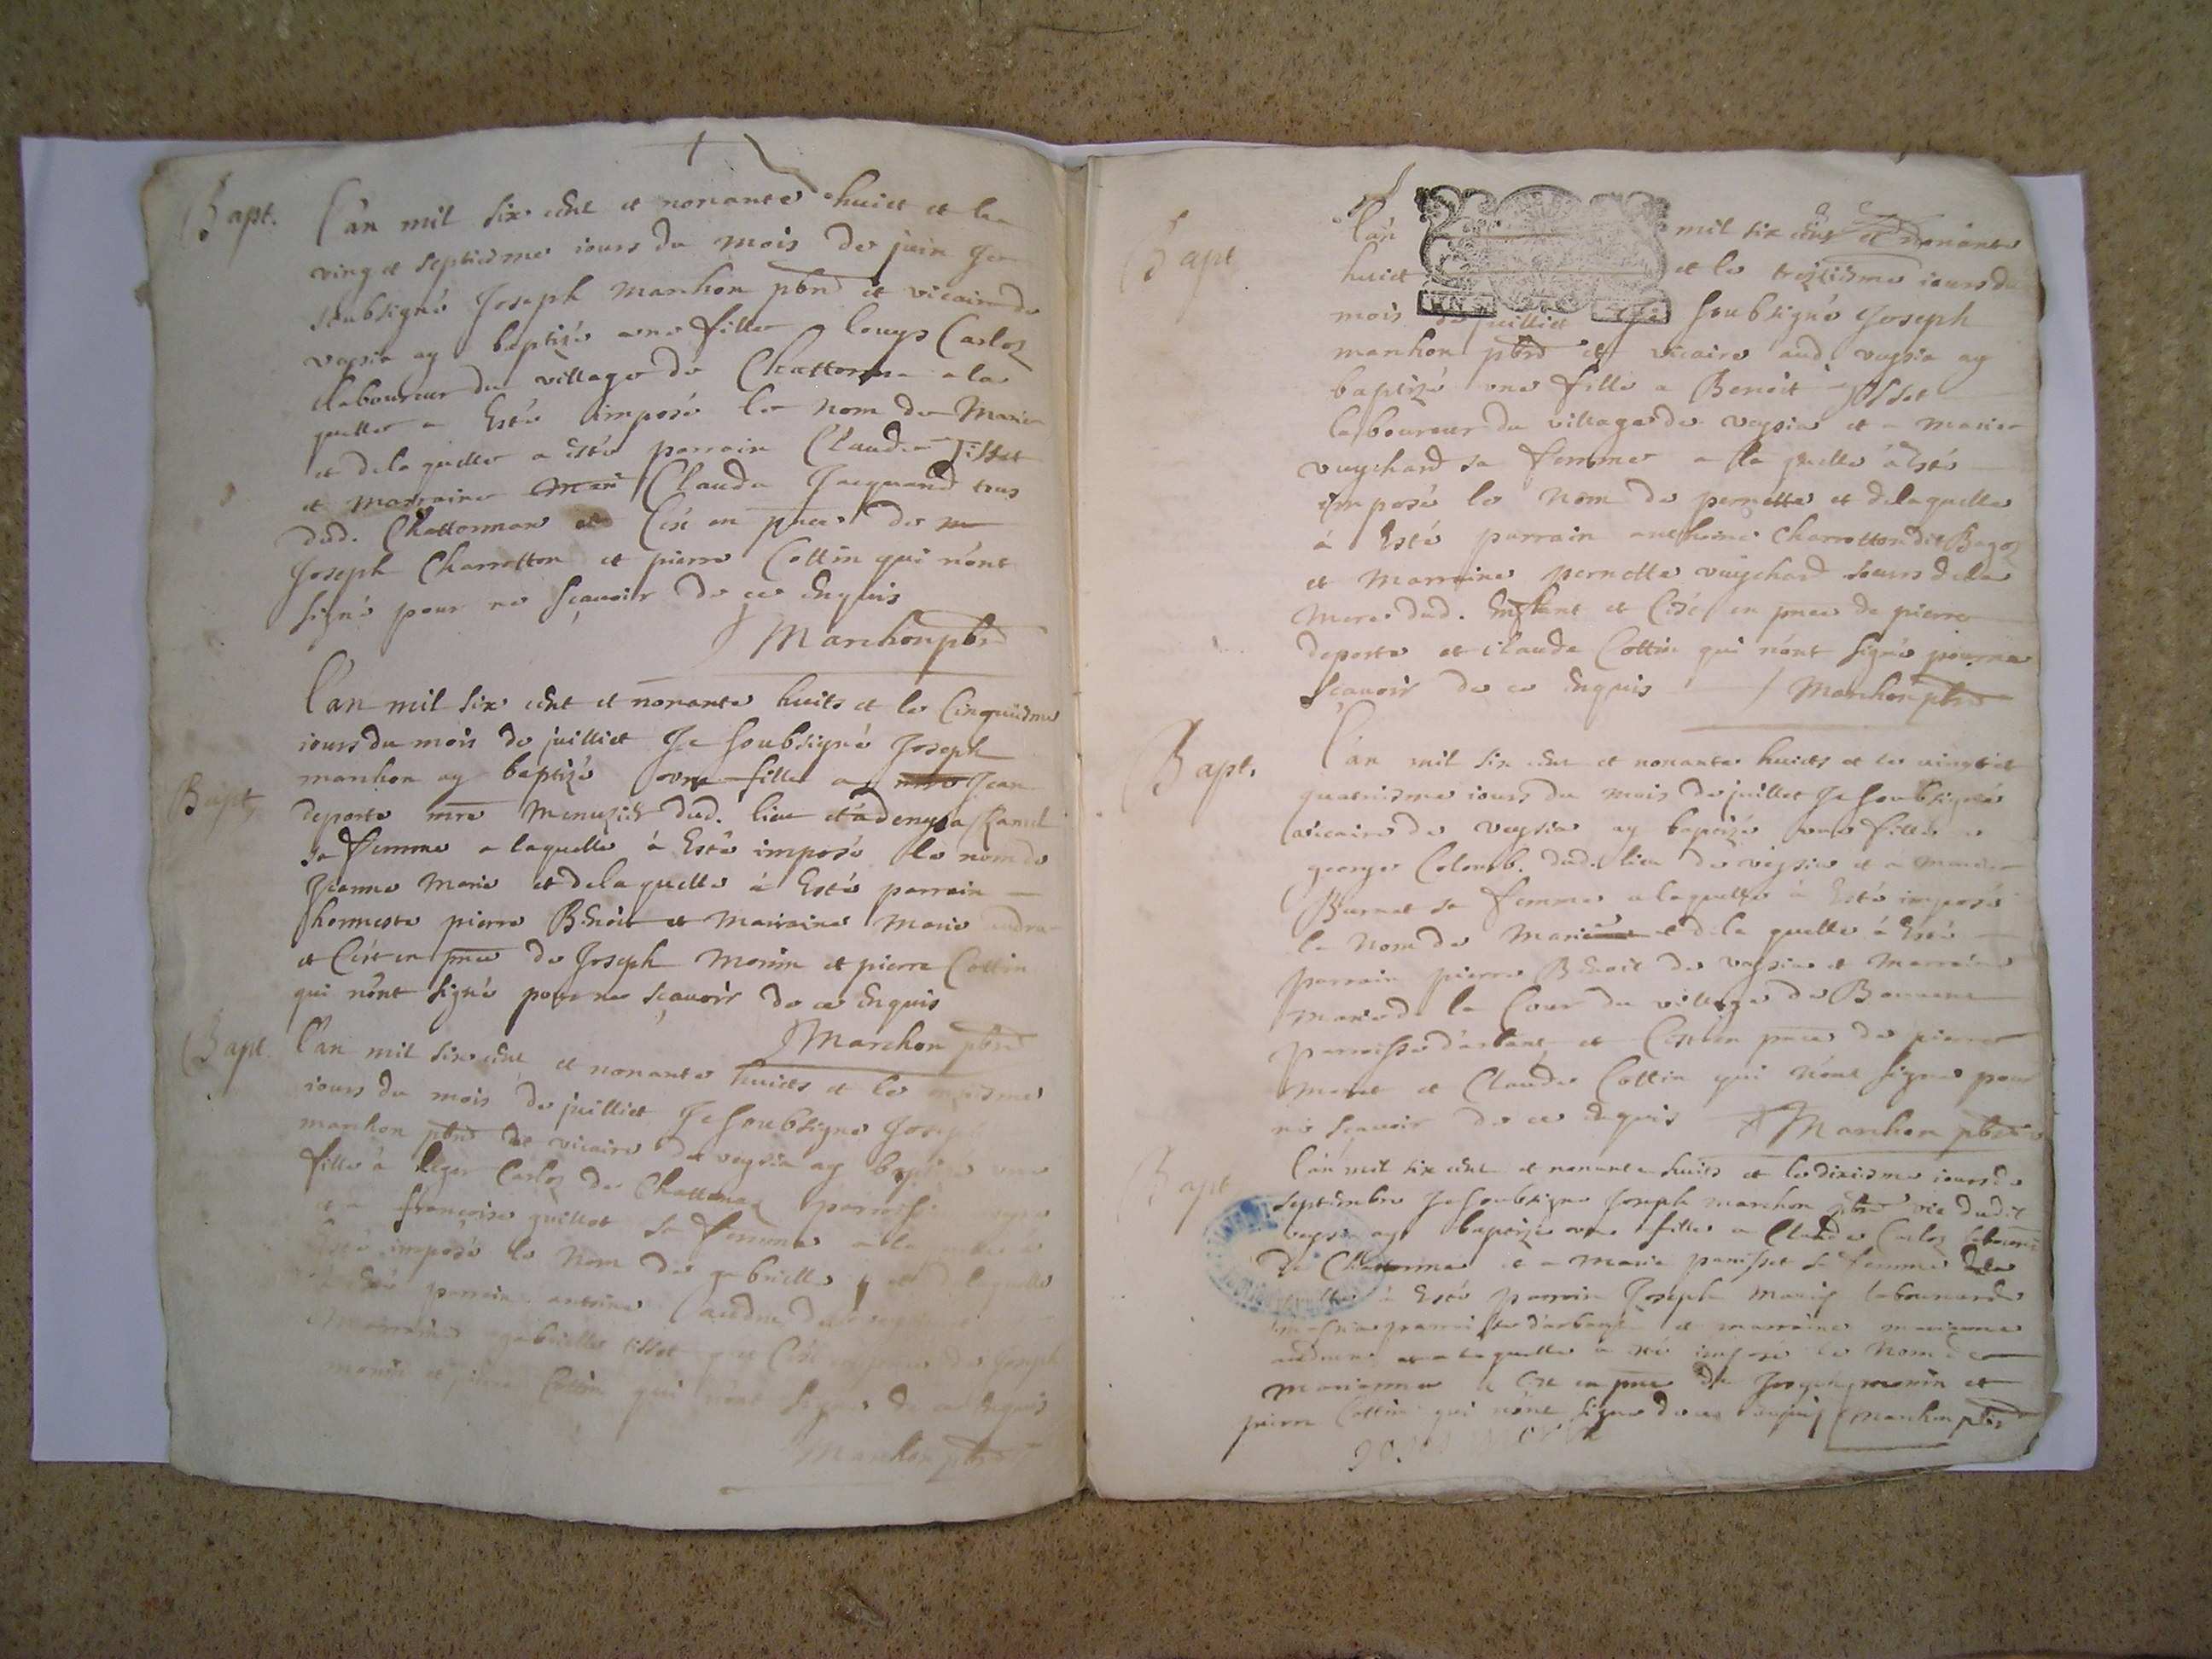 Bapt. L'an mil six cent et nonante huict et le
vingt septiesme iours du mois de juin Je
soubsigné Joseph Marchon pbre et vicaire de
veysia ay baptizé une fille a louys Carloz
laboureur du village de Chattonna a la
quelle a Esté imposé le nom de Marie
et de laquelle a esté parrain Claude Tissot
et marraine Claude Jacquand tous
dud. Chattonnaz et C'est en pnce de
Joseph Charrotton et pierre Cottin qui n'ont
signé pour ne sçauoir de ce Enquis
J Marchon pbre
L'an mil six cent et nonante huits et le Cinquiesme
iours du mois de juilliet Je soubsigné Joseph
Bapt. marchon ay baptizé une fille a Jean
deporte mre Menuzier dud. lieu et a denysa
sa femme a laquelle à Esté imposé le nom de
Jeanne Marie et de laquelle à Esté parrain
honneste pierre Benoit et Marraine Marie
et C'est en pnce de Joseph Monin et pierre Cottin
qui n'ont signé pour ne sçauoir de ce Enquis
J Marchon pbre
Bapt L'an mil six cent et nonante huicts et le onziesme
iours du mois de juilliet Je soubsigne Joseph
marchon pbre et vicaire de veysia ay baptizé une
fille à leger Carloz de Chattonaz parroisse
et a françoise guillot sa femme a laquelle a
Esté imposé le Nom de gabrielle et de laquelle
à Esté parrain antoine
Marraine gabrielle tissot et C'est en pnce de Joseph
monin et pierre Cottin qui n'ont signe de ce Enquis
Marchon pbre
Bapt L'an mil six cent et nonante
huict et le treiziesme iours du
mois de juilliet Je soubsigné Joseph
marchon pbre et vicaire aud. veysia ay
baptizé une fille a Benoit
laboureur du village de veysia et a Marie
vuychard sa femme a la quelle a Esté
imposé le Nom de pernette et de laquelle
à Esté parrain anthoine Charrotton dit Bagoz
et Marraine pernette vuychard soeurs de la
Mere dud. Enfant et C'est en pnce de pierre
deporte et claude Cottin qui n'ont signé pour ne
sçauoir de ce Enquis J Marchon pbre
Bapt. L'an mil six cent et nonante huicts et le vingt et
quatriesme iours du mois de juillet Je soubsigné
vicaire de veysia ay baptizé une fille a
george Colomb. dud. lieu de veysia et a Marie
Burnet sa femme a laquelle à Esté imposé
le Nom de Marie et de la quelle à Esté
parrain pierre Benoit de veysia et Marraine
Marie de la Cour du village de
parroisse d'arbant et C'est en pnce de pierre
et Claude Cottin qui n'ont signe pour
ne sçauoir de ce Enquis J Marchon pbre
Bapt L'an mil six cent et nonante huits et le dixiesme iours de
septembre Je soubsigne Joseph marchon pbre vic dudit
veysia ay baptizé une fille a Claude Carloz laboureur
de Chattonna et a Marie panisset sa femme de la
quelle à Esté parrain Joseph laboureur de
parroisse d'arbant et marraine marianne
a laquelle a esté imposé le Nom de
marianne et C'est en pnce de Joseph monin et
pierre Cottin qui n'ont signe de ce enquis J marchon pbre